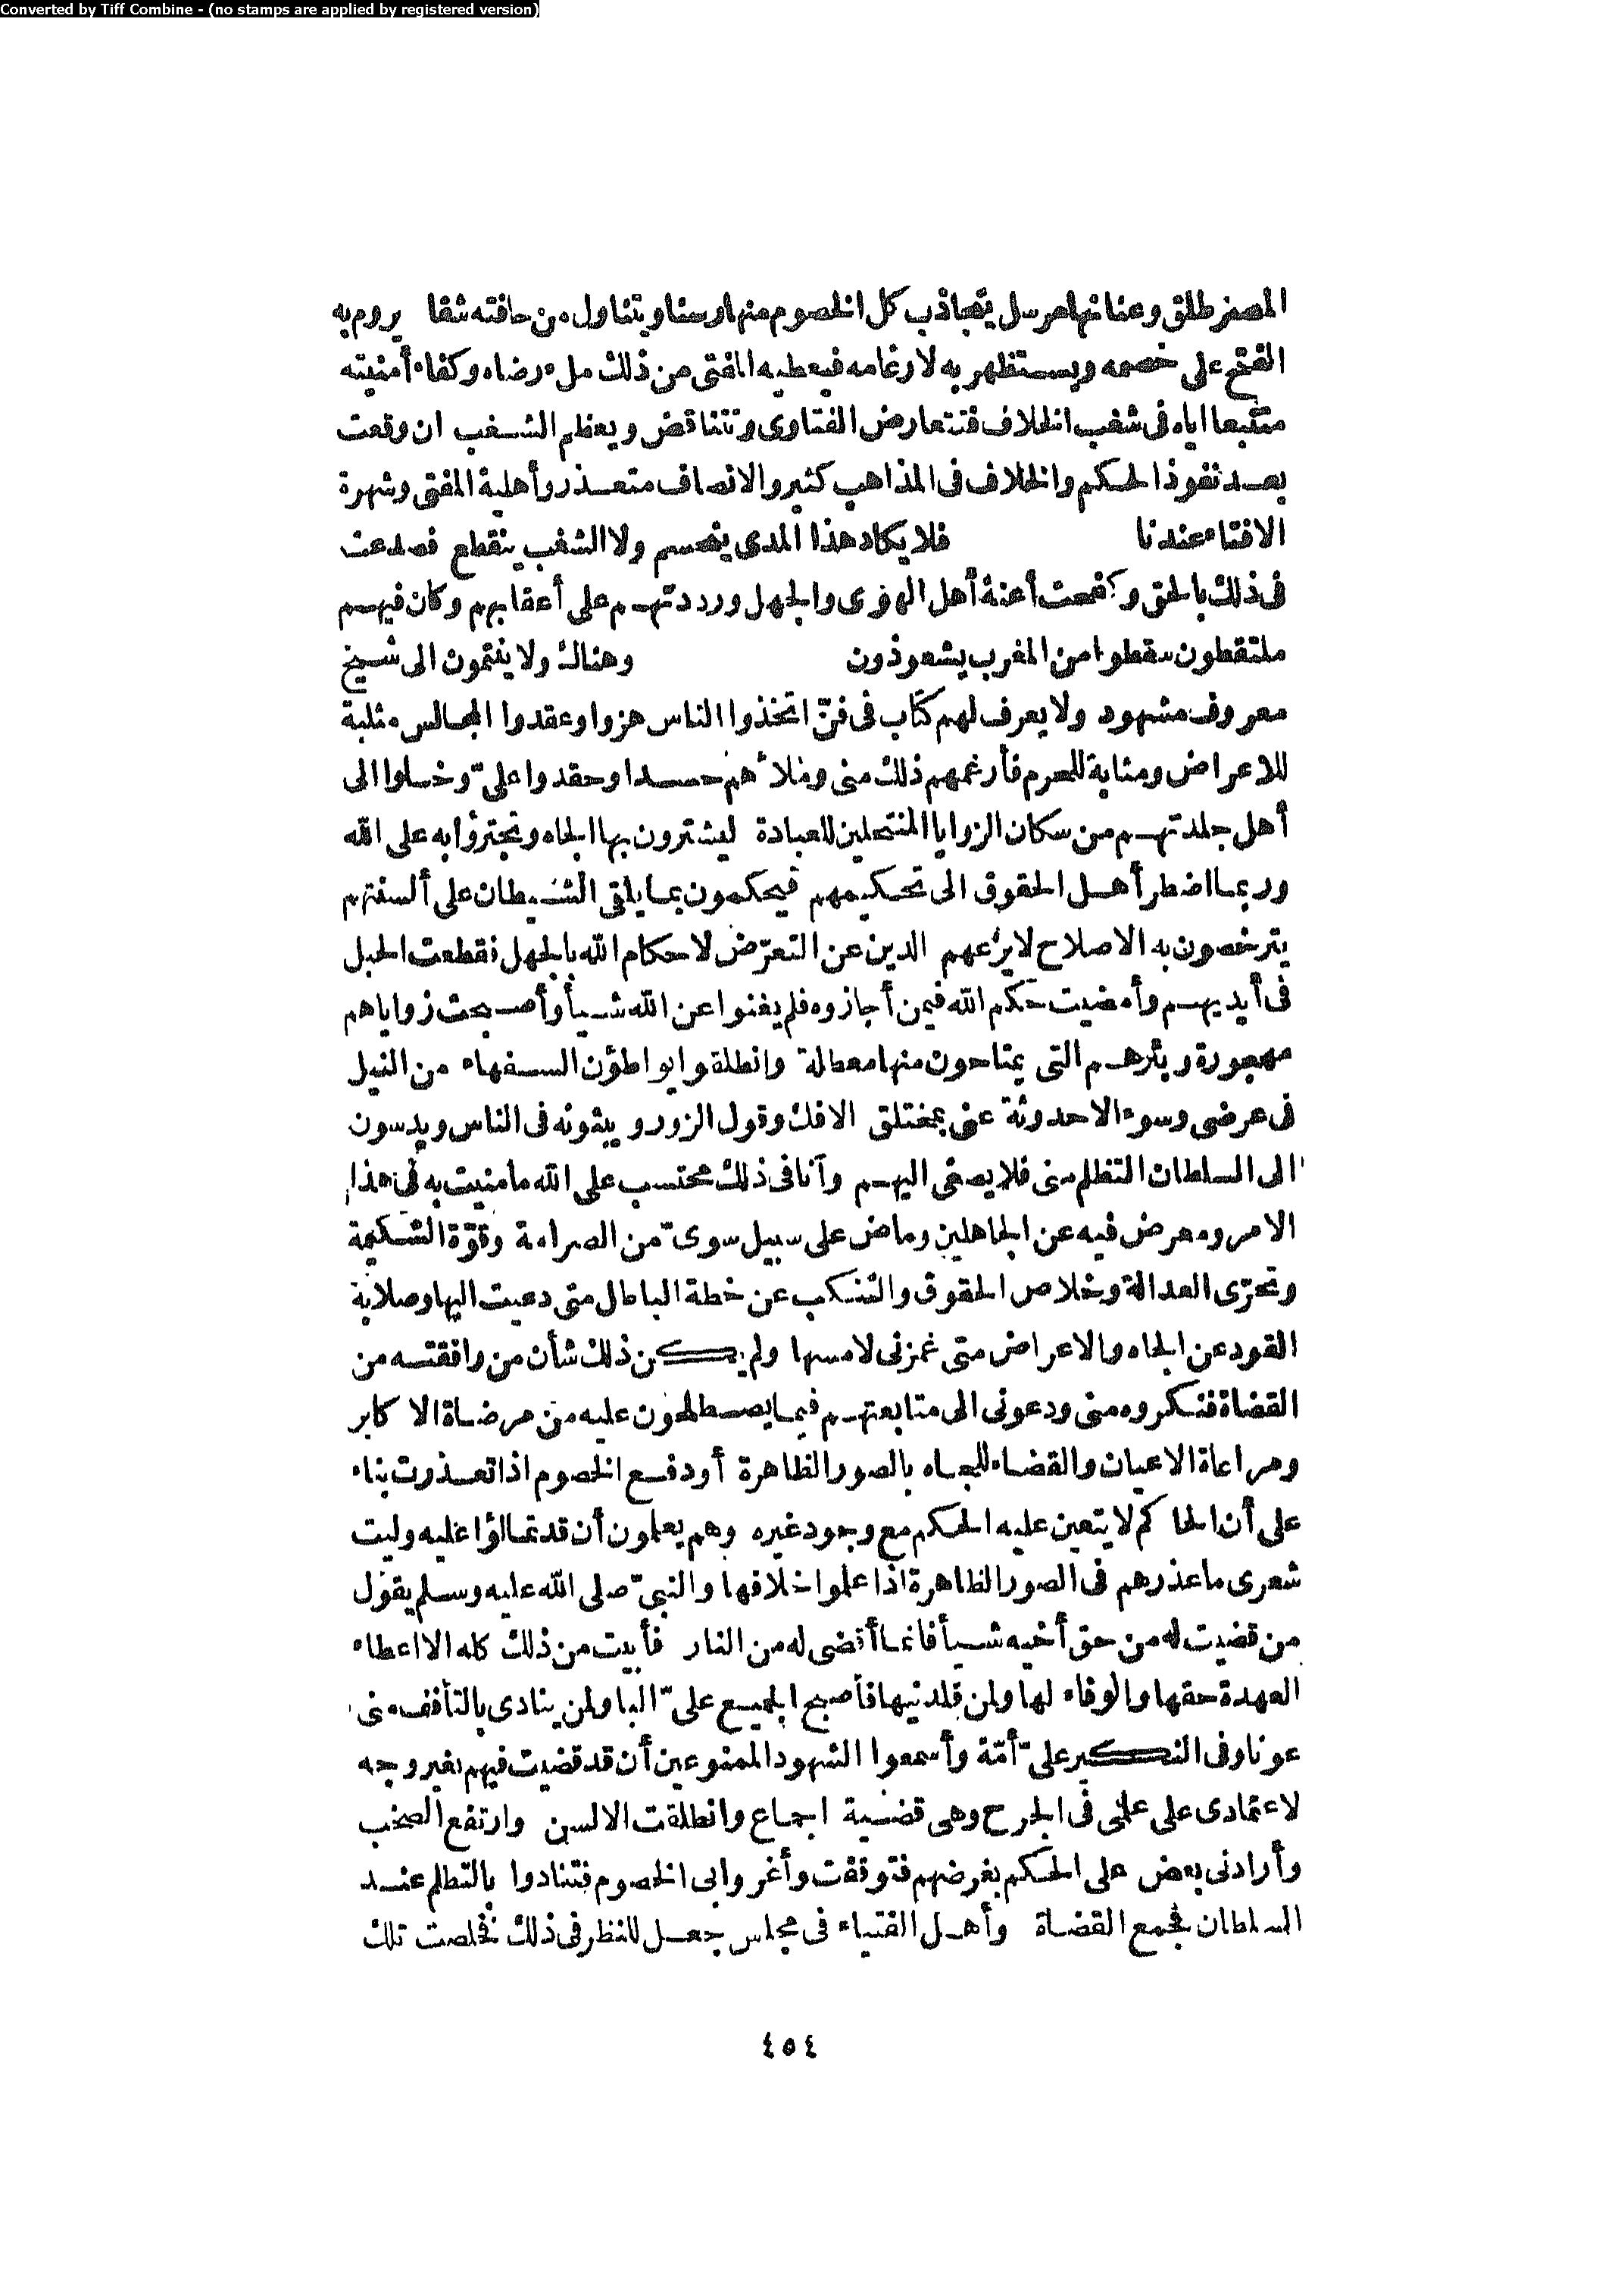 Converted by Tiff Combine - (no stamps are applied by registered version)
المصر طلق وعنانها مرسل يتجاذب كل الخصوم منها رسنا ويتناول من حافته شقا يروم به
الفتح على خصمه ويستظهر به لارغامه فيعطيه المفتى من ذلك ملء رضاه وكفاء أمنيته
متتبعا اياه فى شغب الخلاف فتتعارض الفتاوى وتتناقض ويعظم الشغب ان وقعت
بعد نفوذ الحكم والخلاف فى المذاهب كثير والانصاف متعذر وأهلية المفتى وشهرة
الافتاء عندنا فلا يكاد هذا المدى ينحسم ولا الشغب ينقطع فصدعت
فى ذلك بالحق وكبحت أعنة أهل الهوى والجهل ورددتهم على أعقابهم وكان فيهم
ملتقطون سقطوا من المغرب يشعوذون وهناك ولا ينتمون الى شيخ
معروف مشهود ولا يعرف لهم كتاب فى فنّ اتخذوا الناس هزوا وعقدوا المجالس مثلبة
للاعراض ومثابة للحرم فأرغمهم ذلك منى وملأهم حسدا وحقدوا علىّ وخلوا الى
أهل جلدتهم من سكان الزوايا المنتحلين للعبادة ليشترون بها الجاه ويجترؤا به على الله
وربما اضطر أهل الحقوق الى تحكيمهم فيحكمون بما يلقى الشيطان على ألسنتهم
يترخصون به الاصلاح لا يزعهم الدين عن التعرّض لاحكام الله بالجهل فقطعت الحبل
فى أيديهم وأمضيت حكم الله فيمن أجازوه فلم يغنوا عن الله شيأ وأصبحت زواياهم
مهجورة وبئرهم التى يمتاحون منها معطلة وانطلقوا يواطؤن السفهاء من النيل
فى عرضى وسوء الاحدوثة عنى بمختلق الافك وقول الزور ويبثونه فى الناس ويدسون
الى السلطان التظلم منى فلا يصغى اليهم وأنا فى ذلك محتسب على الله ما منيت به فى هذا
الامر ومعرض فيه عن الجاهلين وماض على سبيل سوىّ من الصرامة وقوّة الشكيمة
وتحرّى العدالة وخلاص الحقوق والتنكب عن خطة الباطل متى دعيت اليها وصلابة
القود عن الجاه والاعراض متى غمزنى لامسها ولم يكن ذلك شأن من رافقته من
القضاة فنكروه منى ودعونى الى متابعتهم فيما يصطلحون عليه من مرضاة الاكابر
ومراعاة الاعيان والقضاء للجاه بالصور الظاهرة أو دفع الخصوم اذا تعذرت بناء
على أن الحاكم لا يتعين عليه الحكم مع وجود غيره وهم يعلمون أن قد تمالؤا عليه وليت
شعرى ما عذرهم فى الصور الظاهرة اذا علموا خلافها والنبىّ صلى الله عليه وسلم يقول
من قضيت له من حق أخيه شيأ فانما أقضى له من النار فأبيت من ذلك كله الا اعطاء
العهدة حقها والوفاء لها ولمن قلدنيها فأصبح الجميع علىّ البا ولمن ينادى بالتأفف منى
عونا وفى النكير علىّ أمّة وأسمعوا الشهود الممنوعين أن قد قضيت فيهم بغير وجه
لاعتمادى على علمى فى الجرح وهى قضية اجماع وانطلقت الالسن وارتفع الصخب
وأرادنى بعض على الحكم بغرضهم فتوقفت وأغروا بى الخصوم فتنادوا بالتظلم عند
السلطان فجمع القضاة وأهل الفتياء فى مجلس جعل للنظر فى ذلك فخلصت تلك
٤٥٤